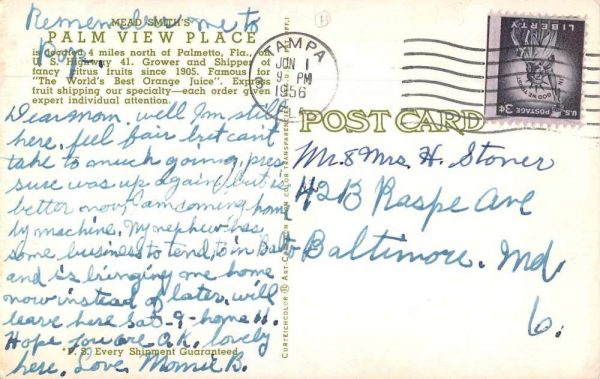 Remember me to
Roy L.
MEAD SMITH'S
PALM VIEW PLACE
is located 4 miles north of Palmetto, Fla., on
U. S. Highway 41. Grower and Shipper
fancy citrus fruits since 1905. Famous for
"The World's Best Orange Juice". Express
fruit shipping our specialty—each order given
expert individual attention.
Dear Mom. well Im still
here. feel fair but cant
take to much going, pres
sure was up again, but is
better now, am coming home
by machine. My nephew has
some business to tend, to in Balto
and is bringing me home
now instead of later. will
leave here Sat-9-home 11.
Hope you are O.K. lovely
here. Love Momie B.
P.S. Every Shipment Guaranteed.
CURTEICHCOLOR ® ART-CREATION FROM COLOR TRANSPARENCIE
TAMPA
JUN 1
9 PM
1956
FLA
LIBERTY
IN GOD WE TRUST
U.S. POSTAGE 3¢
POST CARD
Mr. & Mrs. H. Stoner
4213 Raspe Ave
Baltimore. Md.
6.